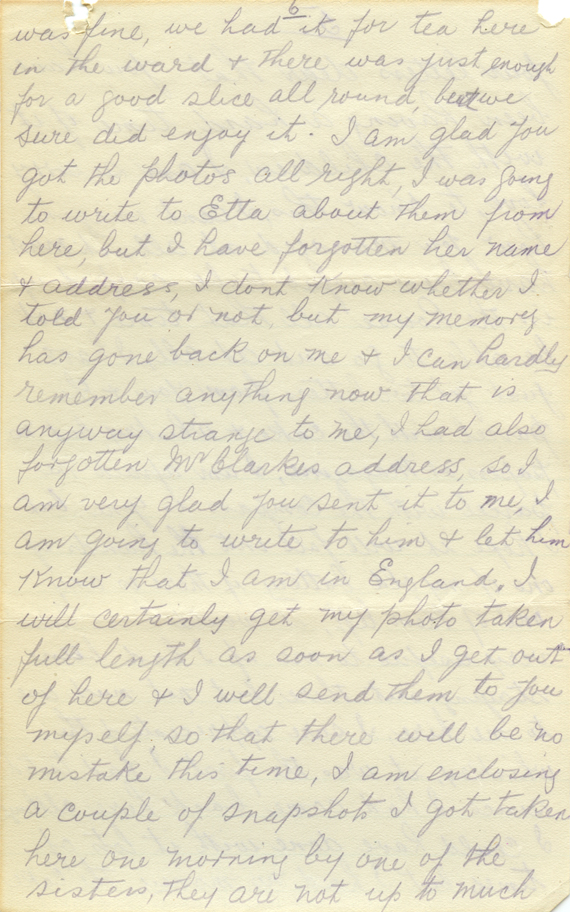 6
was fine, we had it for tea here
in the ward & there was just enough
for a good slice all round, but we
sure did enjoy it. I am glad you
got the photos all right, I was going
to write to Etta about them from
here, but I have forgotten her name
& address, I dont know whether I
told you or not, but my memory
has gone back on me & I can hardly
remember anything now that is
anyway strange to me, I had also
forgotten Mr Clarkes address, so I
am very glad you sent it to me, I
am going to write to him & let him
know that I am in England. I
will certainly get my photo taken
full length as soon as I get out
of here & I will send them to you
myself, so that there will be no
mistake this time, I am enclosing
a couple of snapshots I got taken
here one morning by one of the
sisters, they are not up to much